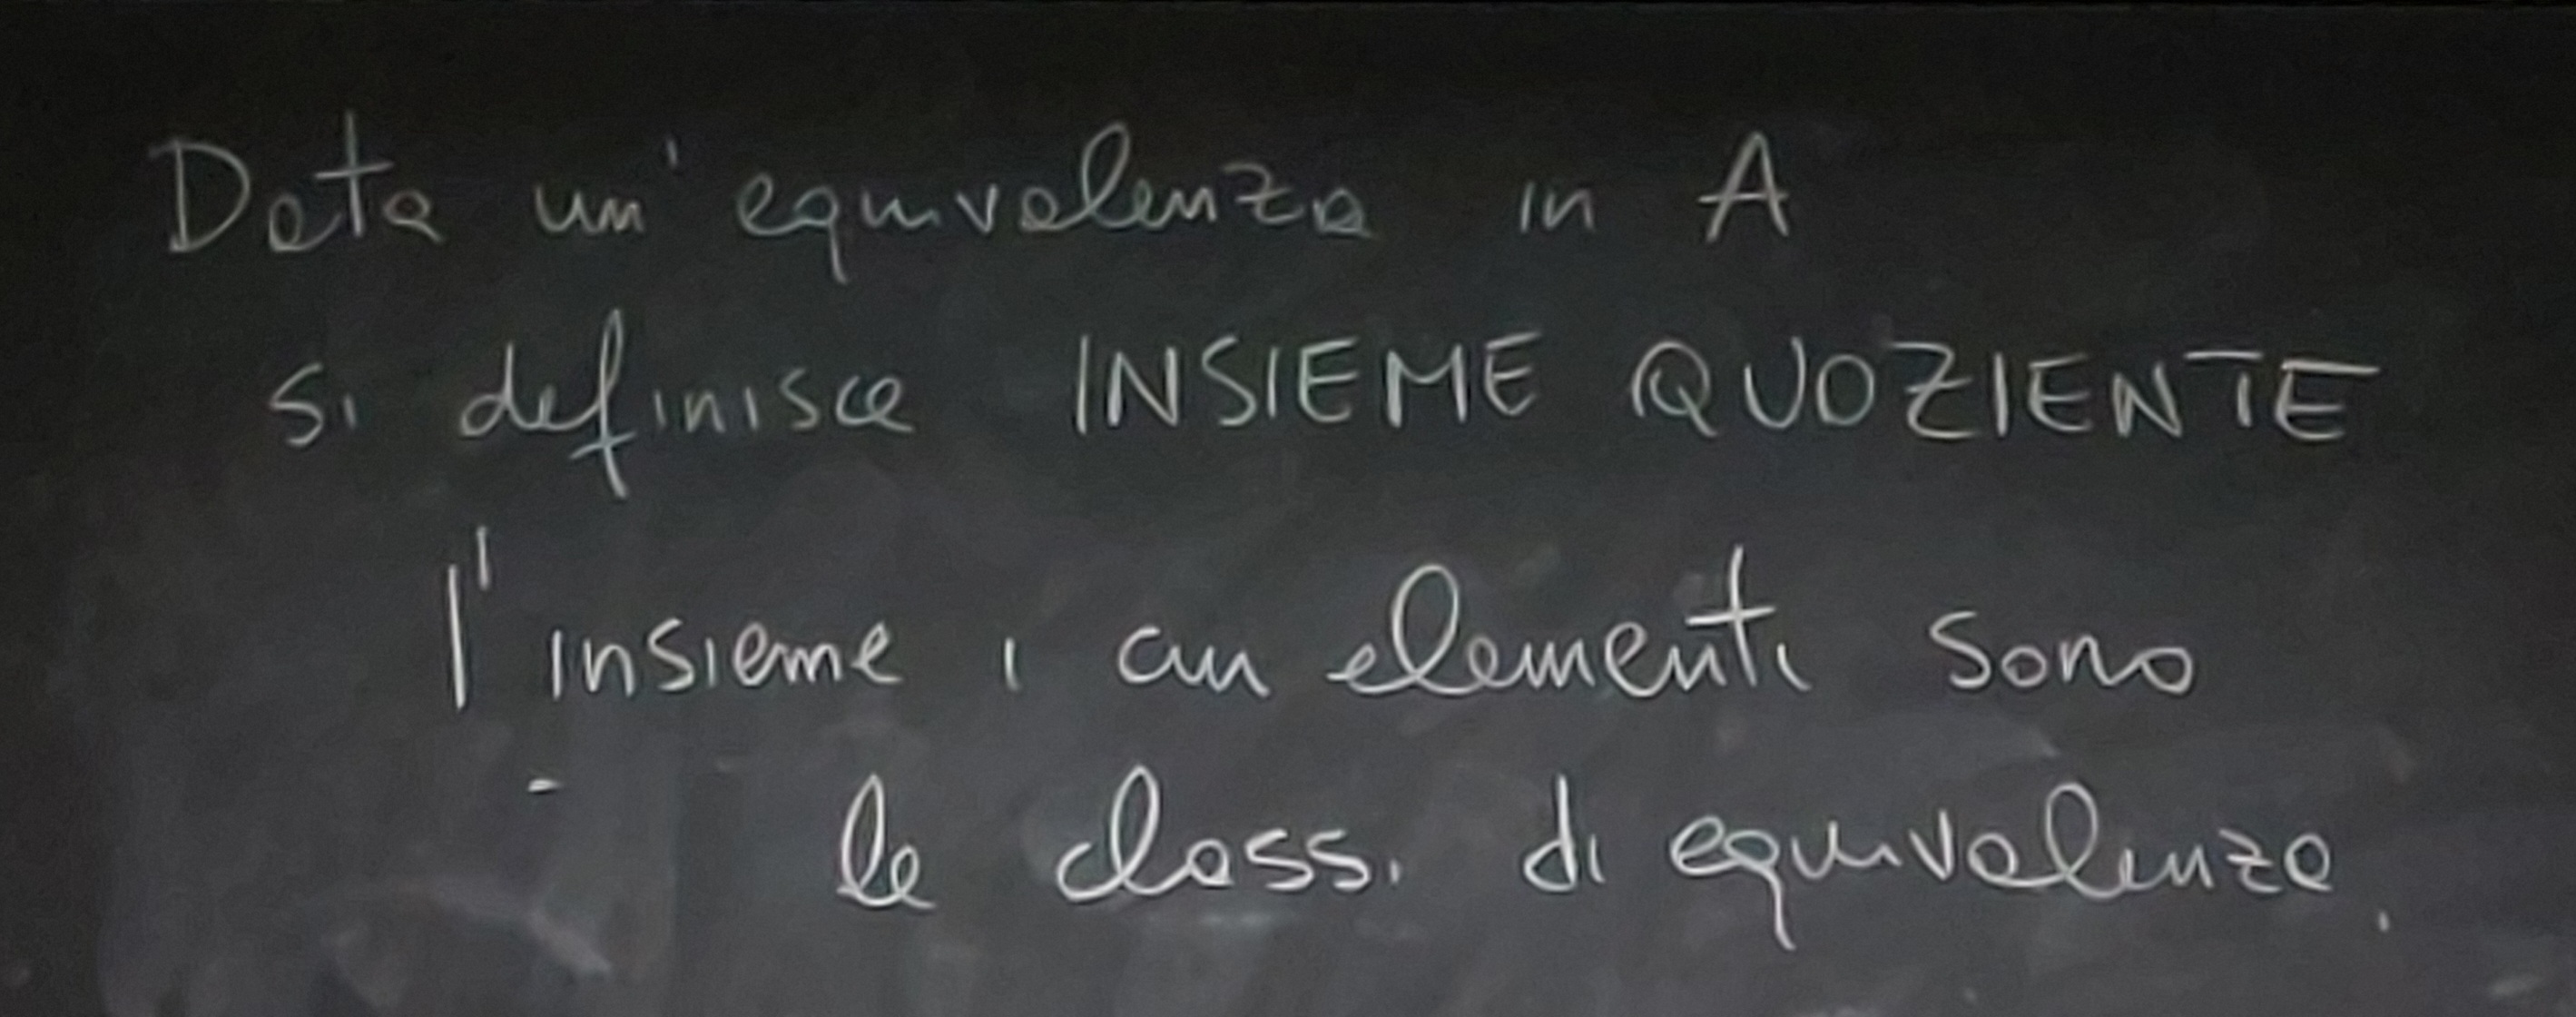 Data un'equivalenza in A
si definisce INSIEME QUOZIENTE
l'insieme i cui elementi sono
le classi di equivalenza.